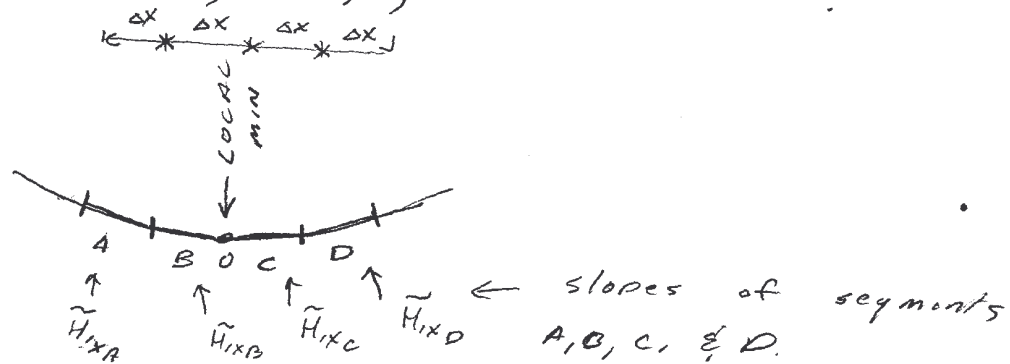 ΔX ΔX ΔX ΔX
LOCAL
MIN
A B O C D
H̃,xA H̃,xB H̃,xC H̃,xD ← slopes of segments
A, B, C, & D.